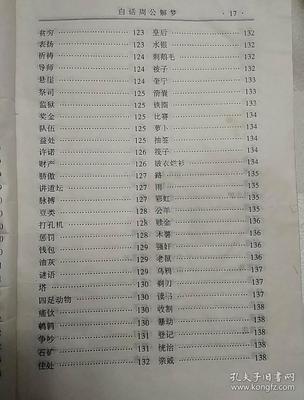 白话周公解梦 ·17·
贫穷 123
表扬 123
祈祷 124
导师 124
悬崖 124
祭司 125
监狱 125
奖金 125
队伍 125
益处 125
许诺 126
财产 126
骄傲 127
讲道坛 127
脉搏 127
豆类 128
打孔机 128
惩罚 128
钱包 128
油灰 129
谜语 129
塔 130
四足动物 130
痛饮 130
鹌鹑 130
争吵 131
石矿 131
住处 132
皇后 132
水银 132
刺鹅毛 132
被子 132
奎宁 133
箭囊 133
铁圈 133
比赛 133
萝卜 134
抽签 134
筏子 134
破衣烂衫 134
路 135
雨 135
彩虹 135
公羊 135
赎金 136
木薯 136
强奸 136
老鼠 136
乌鸦 136
剃刀 137
读书 137
收割 137
暴动 137
登记 138
统治 138
亲戚 138
孔夫子旧书网